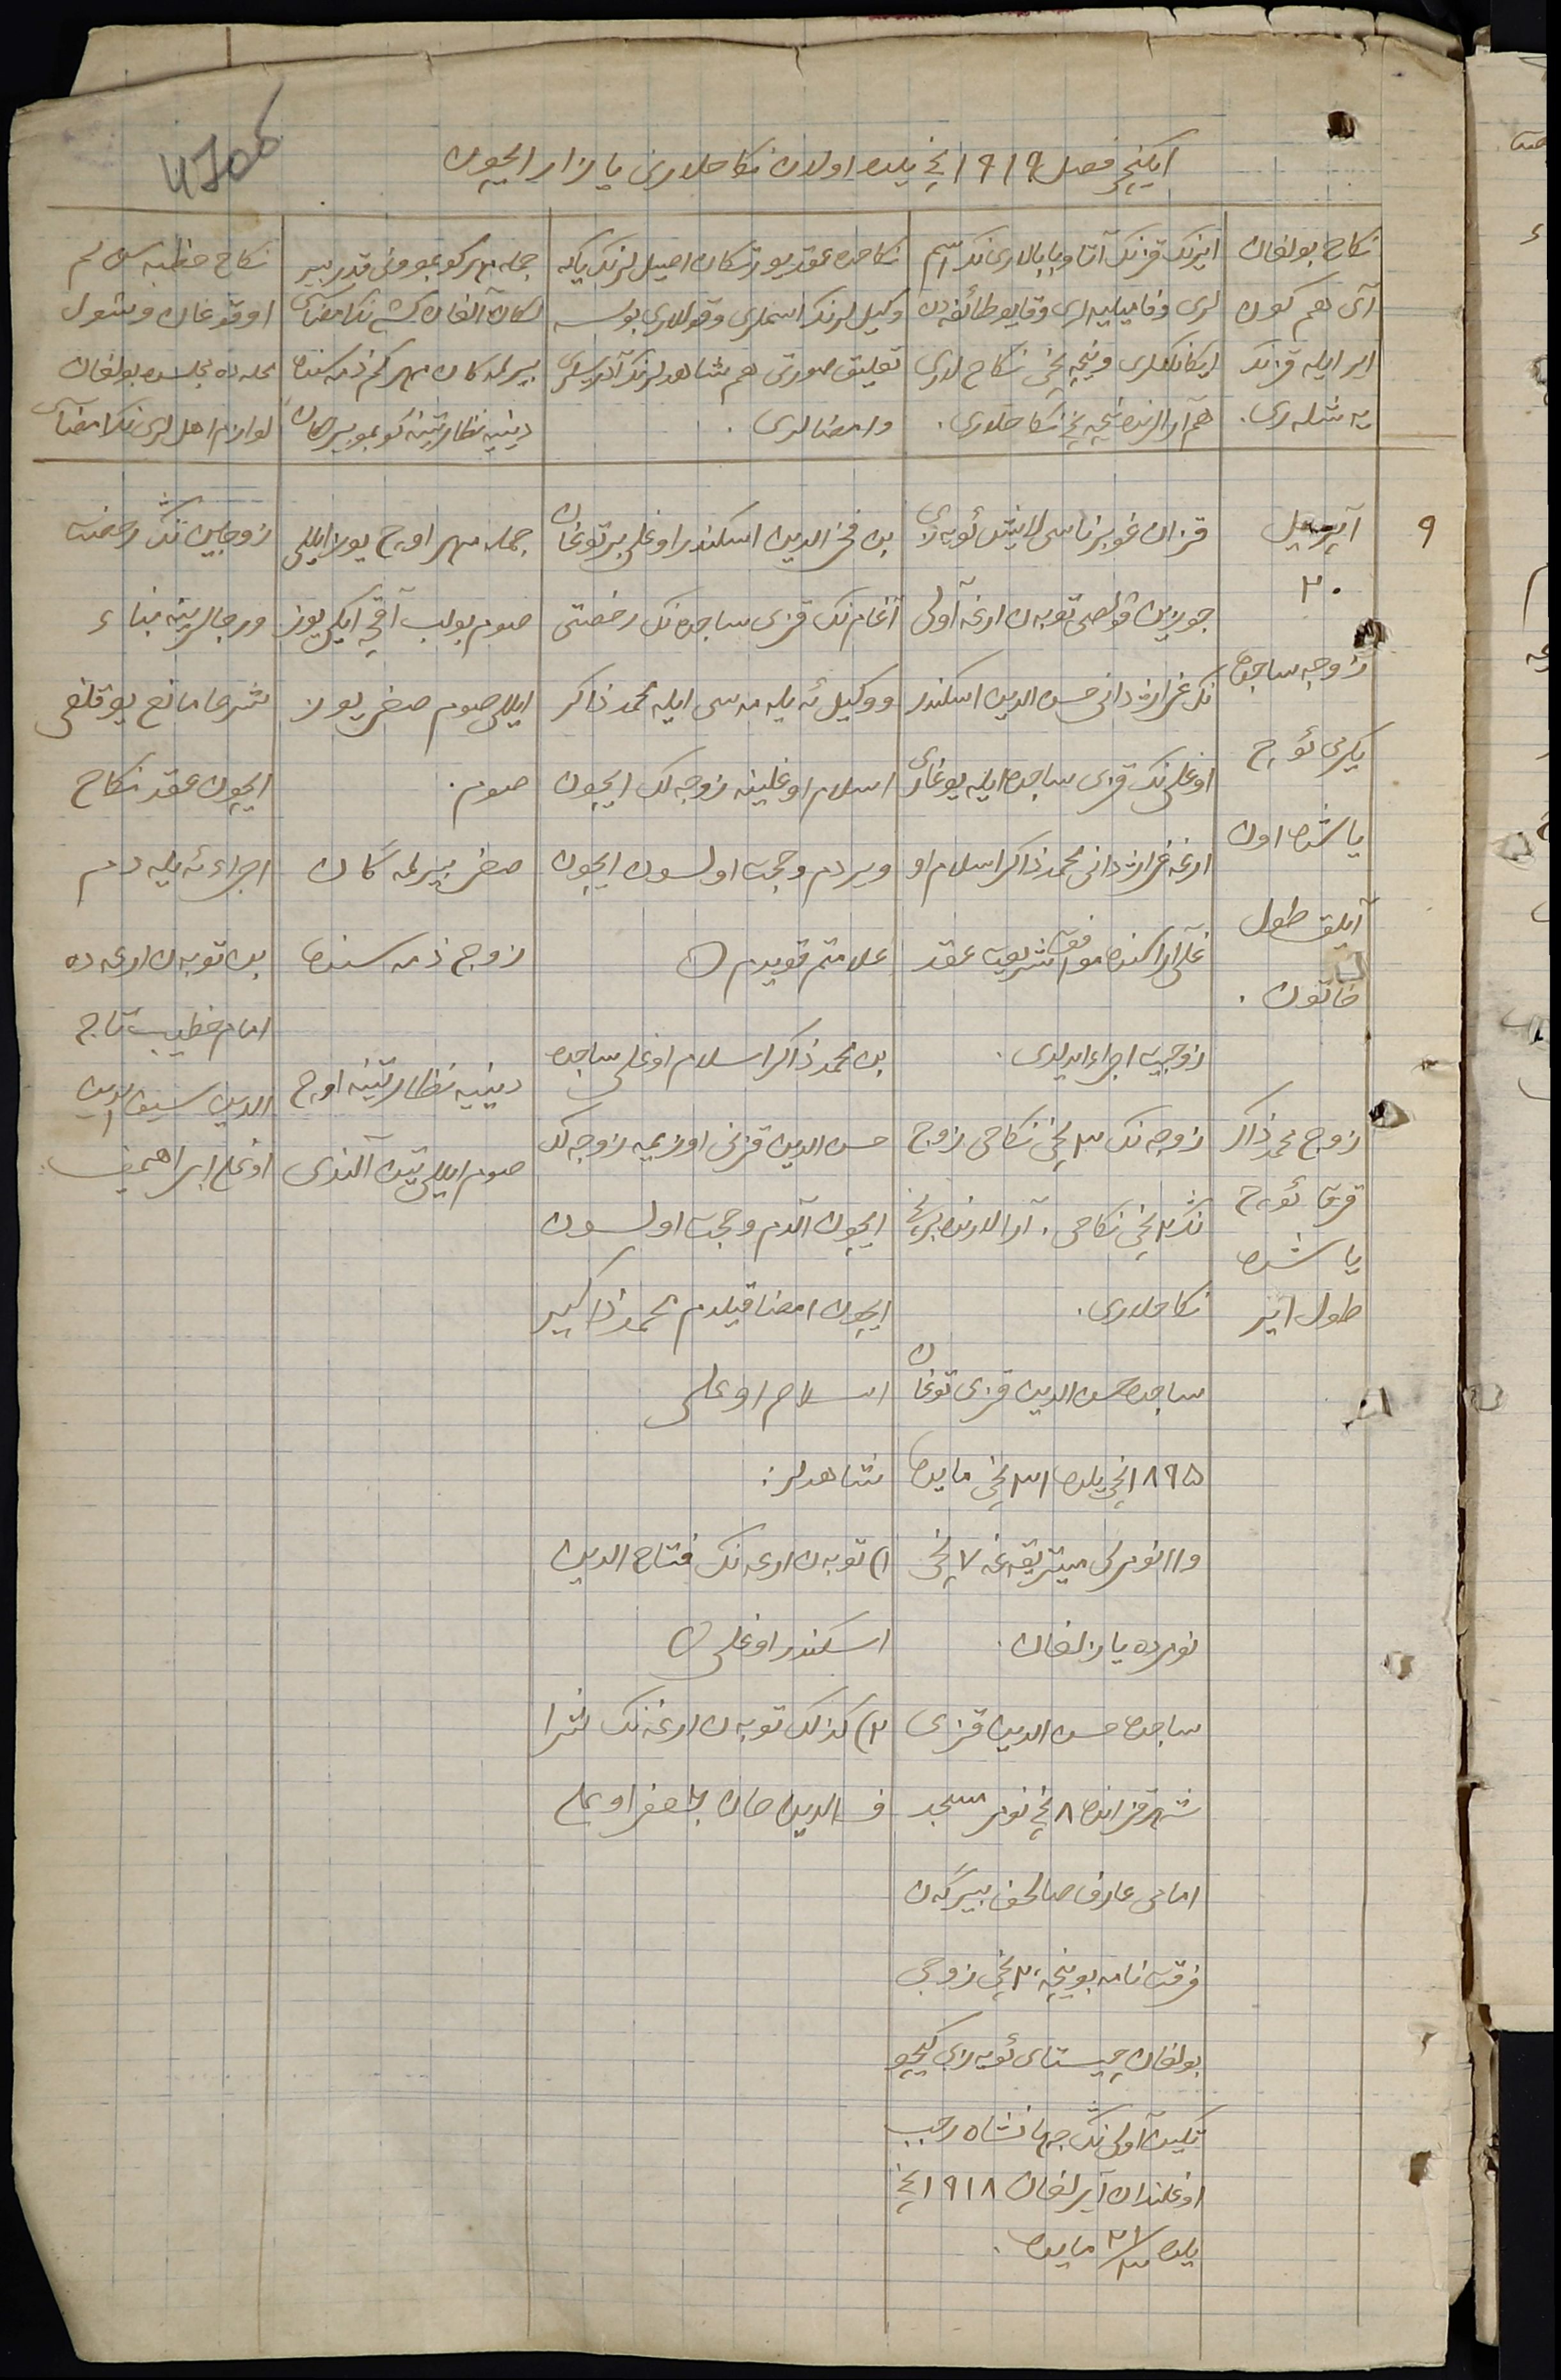 4706
ایکنچی فصل ۱۹۱۹ نچی یلده اولان نکاحلارنی یازار ایچون
نکاح بولغان
آی هم کون
ایر ایله قزنك
یه شلەری.
ایرنك قزنك آتا وبابالاری نك اسم
لری وفامیلیه لری وقایو طائفه دن
ایکانلکلری ونیچه نچی نکاح لاری
هم آرالرنده نیچه نچی نکاحلاری.
نکاحده عقد یورتکان اصیل لرنك یاکه
وکیل لرنك اسملری وقوللاری بولسه
تعلیق صورتی هم شاهدلرنك آدریسلری
وامضالری.
جمله مهر کوبمو وفی قدر بیر
بیرلمەکان مهر کم ذمه سنده
دینیه نظارتینه کوبمو بیرلکان
نکاح خطبه سی کم
اوقوغان وشول
محله ده مجلسده بولغان
لوازم اهل لری نك امضاسی
۹
آپریل
۲۰
زوجه ساجده
یکرمی ئوچ
یاشده اون
آیلق طول
خاتون.
زوج محمد ذاکر
قرق ئوچ
یاشده
طول ایر
قزان غوبرناسی لایش ئویه زی
جوریین ولصی توبه ن ارغه آولی
نك غراژدانی حسن الدین اسکندر
اوغلی نك قزی ساجده ایله یوغاری
ارغه غراژدانی محمد ذاکر اسلام او
غلی آراسنده موافق شریعت عقد
زوجیت اجراء ایدلدی.
زوجه نك ۳ نچی نکاحی زوج
نك ۲ نچی نکاحی. آرالارنده برنچی
نکاحلاری.
ساجده حسن الدین قزی توغان
۱۸۹۵ نچی یلده ۳۱ نچی مایده
و۱۱ نومرلی میتریقه غه ۷ نچی
نومرده یازلغان.
ساجده حسن الدین قزی
شهر قزانده ۸ نچی نومر مسجد
امامی عارف صالحف بیرگەن
فرقت نامه بوینچه ۲ نچی زوجی
بولغان چیستای ئویه زی کیچو
تکین آولی نك جهانشاه رجب
اوغلندان آیرلغان ۱۹۱۸ نچی
یلده مایده.
بن فخر الدین اسکندر اوغلی بر توغان
آغام نك قزی ساجده نك رخصتی
ووکیل ئه یله مه سی ایله محمد ذاکر
اسلام اوغلینه زوجه لك ایچون
ویردم وحجت اولسون ایچون
علامتم قویدم
بن محمد ذاکر اسلام اوغلی ساجده
حسن الدین قزنی اوزیمه زوجه لك
ایچون آلدم وحجت اولسون
ایچون امضا قیلدم محمد ذاکیر
اسلام اوغلی
شاهدلر:
۱) توبه ن ارغه نك فتاح الدین
اسکندر اوغلی
۲) کذلك توبه ن ارغه نك شرا
ف الدین جعفر اوغلی
جمله مهر اوچ یوز ایللی
صوم بولب آقچه ایکی یوز
ایللی صوم صغر یوز
صوم.
صغر بیرلمه گان
زوج ذمه سنده
دینیه نظارتینه اوچ
صوم ایللی تین آلندی
زوجین نك رخصت
ورجالرینه بناء
شرعا مانع یوقلغی
ایچون عقد نکاح
اجراء ئه یله دم
بن توبه ن ارغه ده
امام خطیب تاج
الدین سیف الدین
اوغلی ابراهیمف